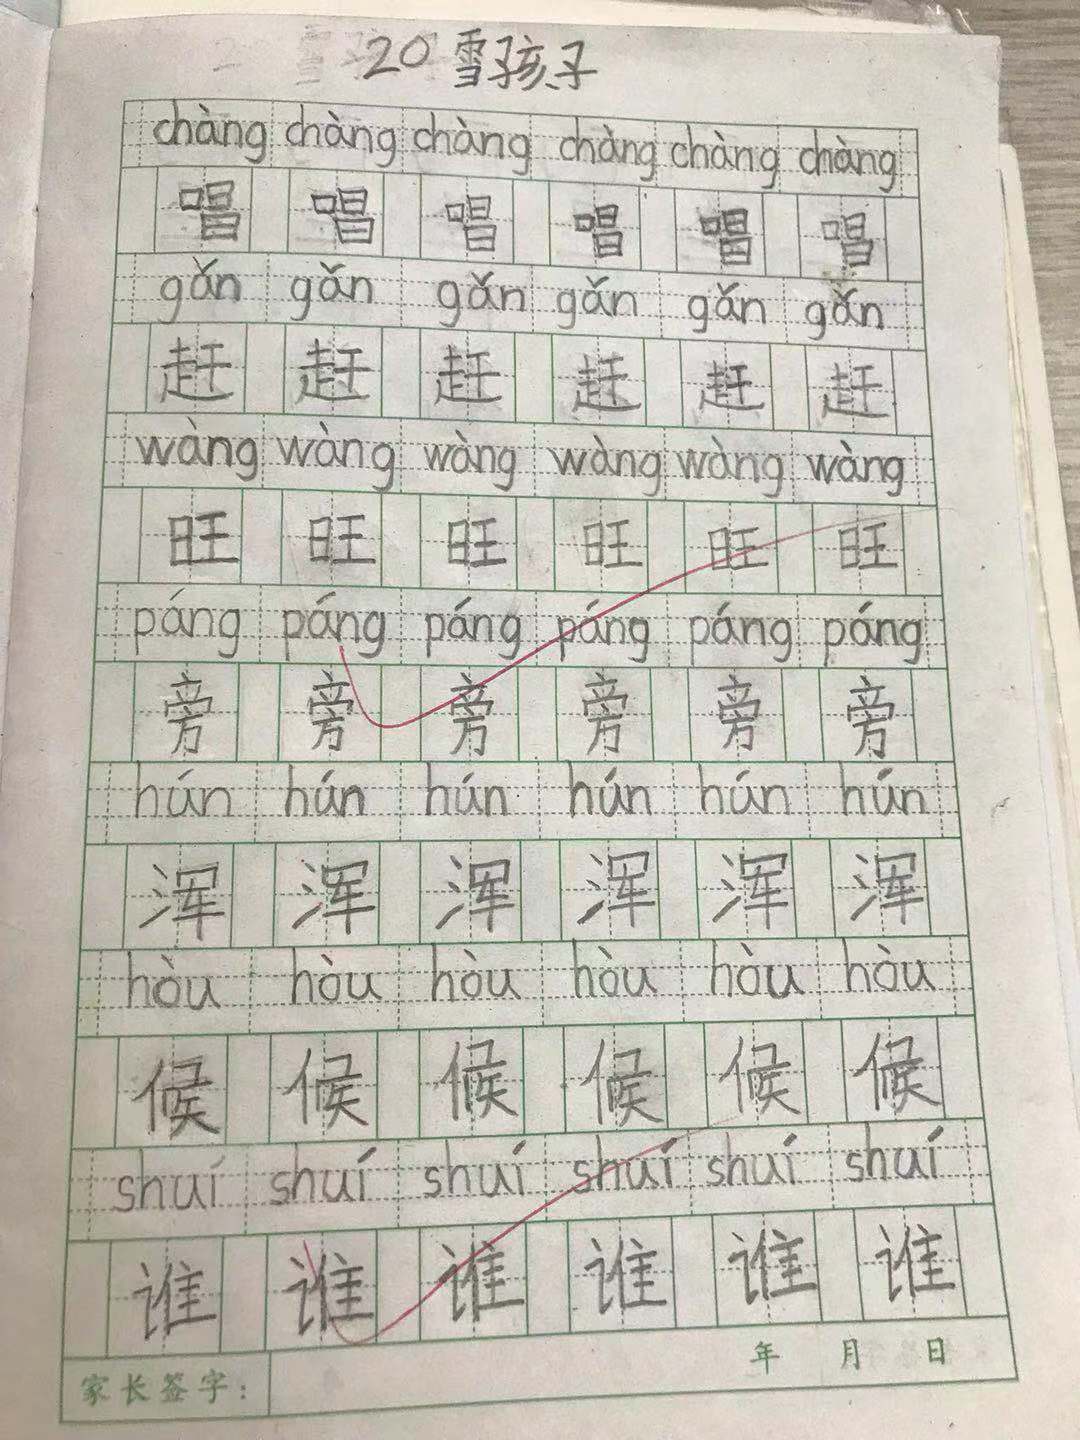 20 雪孩子
chàng chàng chàng chàng chàng chàng
唱 唱 唱 唱 唱 唱
gǎn gǎn gǎn gǎn gǎn gǎn
赶 赶 赶 赶 赶 赶
wàng wàng wàng wàng wàng wàng
旺 旺 旺 旺 旺 旺
páng páng páng páng páng páng
旁 旁 旁 旁 旁 旁
hún hún hún hún hún hún
浑 浑 浑 浑 浑 浑
hòu hòu hòu hòu hòu hòu
候 候 候 候 候 候
shuí shuí shuí shuí shuí shuí
谁 谁 谁 谁 谁 谁
家长签字： 年 月 日